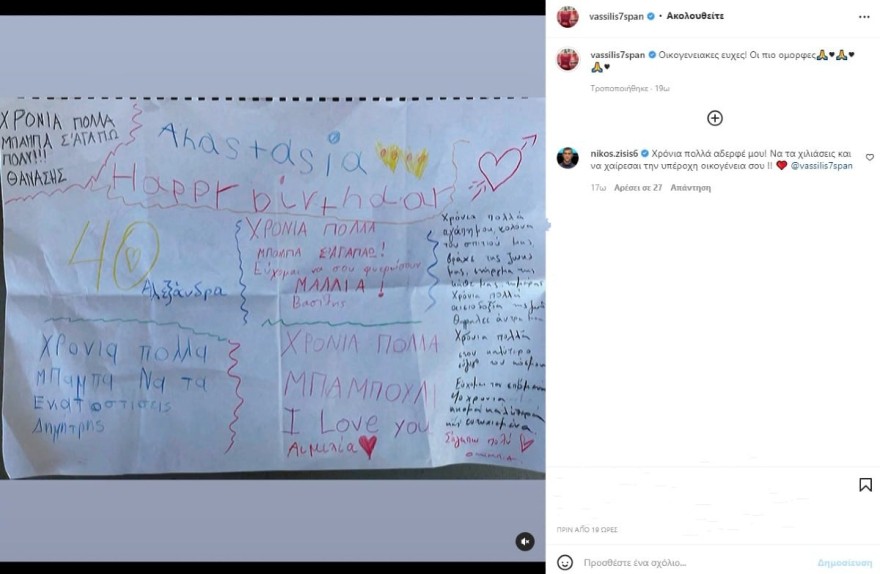 ΧΡΟΝΙΑ ΠΟΛΛΑ
ΜΠΑΜΠΑ Σ'ΑΓΑΠΩ
ΠΟΛΥ!!!
ΘΑΝΑΣΗΣ
Anastasia
Happy birthday
40
Αλεξάνδρα
ΧΡΟΝΙΑ ΠΟΛΛΑ
ΜΠΑΜΠΑ Σ'ΑΓΑΠΑΩ!
Εύχομαι να σου φυτρώσουν
ΜΑΛΛΙΑ!
Βασίλης
Χρόνια πολλά
αγάπη μου, κολώνα
του σπιτιού μας,
βράχε της ζωής
μας,
κάθε μας
Χρόνια πολλά
Χρονια πολλα
Μπαμπα Να τα
Εκατοστισεις
Δημήτρης
ΧΡΟΝΙΑ ΠΟΛΛΑ
ΜΠΑΜΠΟΥΛΙ
I Love you
Αιμιλία
Χρόνια πολλά
στον καλύτερο
Σ'αγαπώ πολύ
vassilis7span • Ακολουθείτε
vassilis7span Οικογενειακες ευχες! Οι πιο ομορφες🙏♥🙏♥
🙏♥
Τροποποιήθηκε · 19ω
nikos.zisis6 Χρόνια πολλά αδερφέ μου! Να τα χιλιάσεις και
να χαίρεσαι την υπέροχη οικογένεια σου !! ❤️ @vassilis7span
17ω Αρέσει σε 27 Απάντηση
ΠΡΙΝ ΑΠΌ 19 ΏΡΕΣ
Προσθέστε ένα σχόλιο...
Δημοσίευση